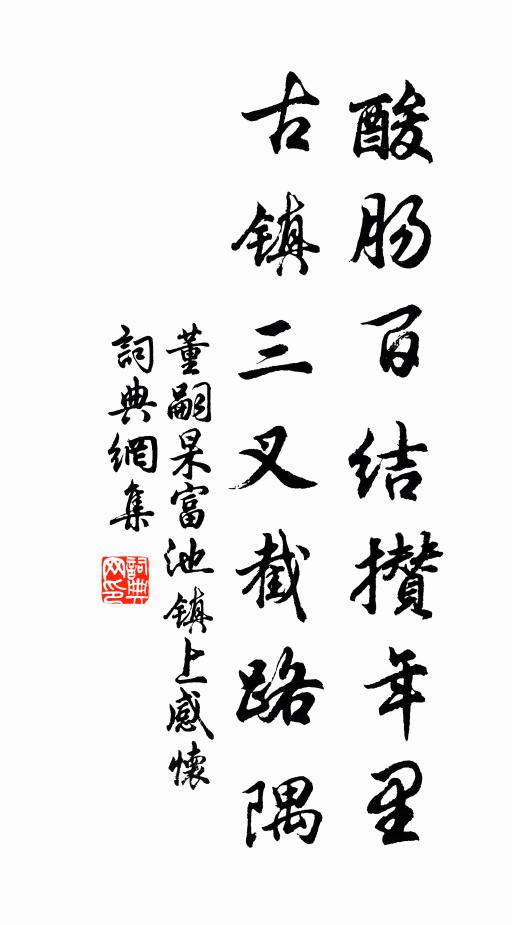 酸肠百结攒年里
古镇三叉截路隅
董嗣杲富池镇上感怀
詞典網集
詞典網印